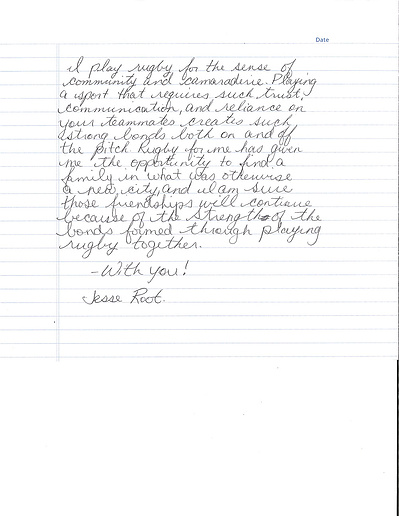 Date
I play rugby for the sense of
community and camaraderie. Playing
a sport that requires such trust,
communication, and reliance on
your teammates creates such
strong bonds both on and off
the pitch. Rugby for me has given
me the opportunity to find a
family in what was otherwise
a new city, and I am sure
those friendships will continue
because of the strength of the
bonds formed through playing
rugby together.
-With you!
Jesse Root.